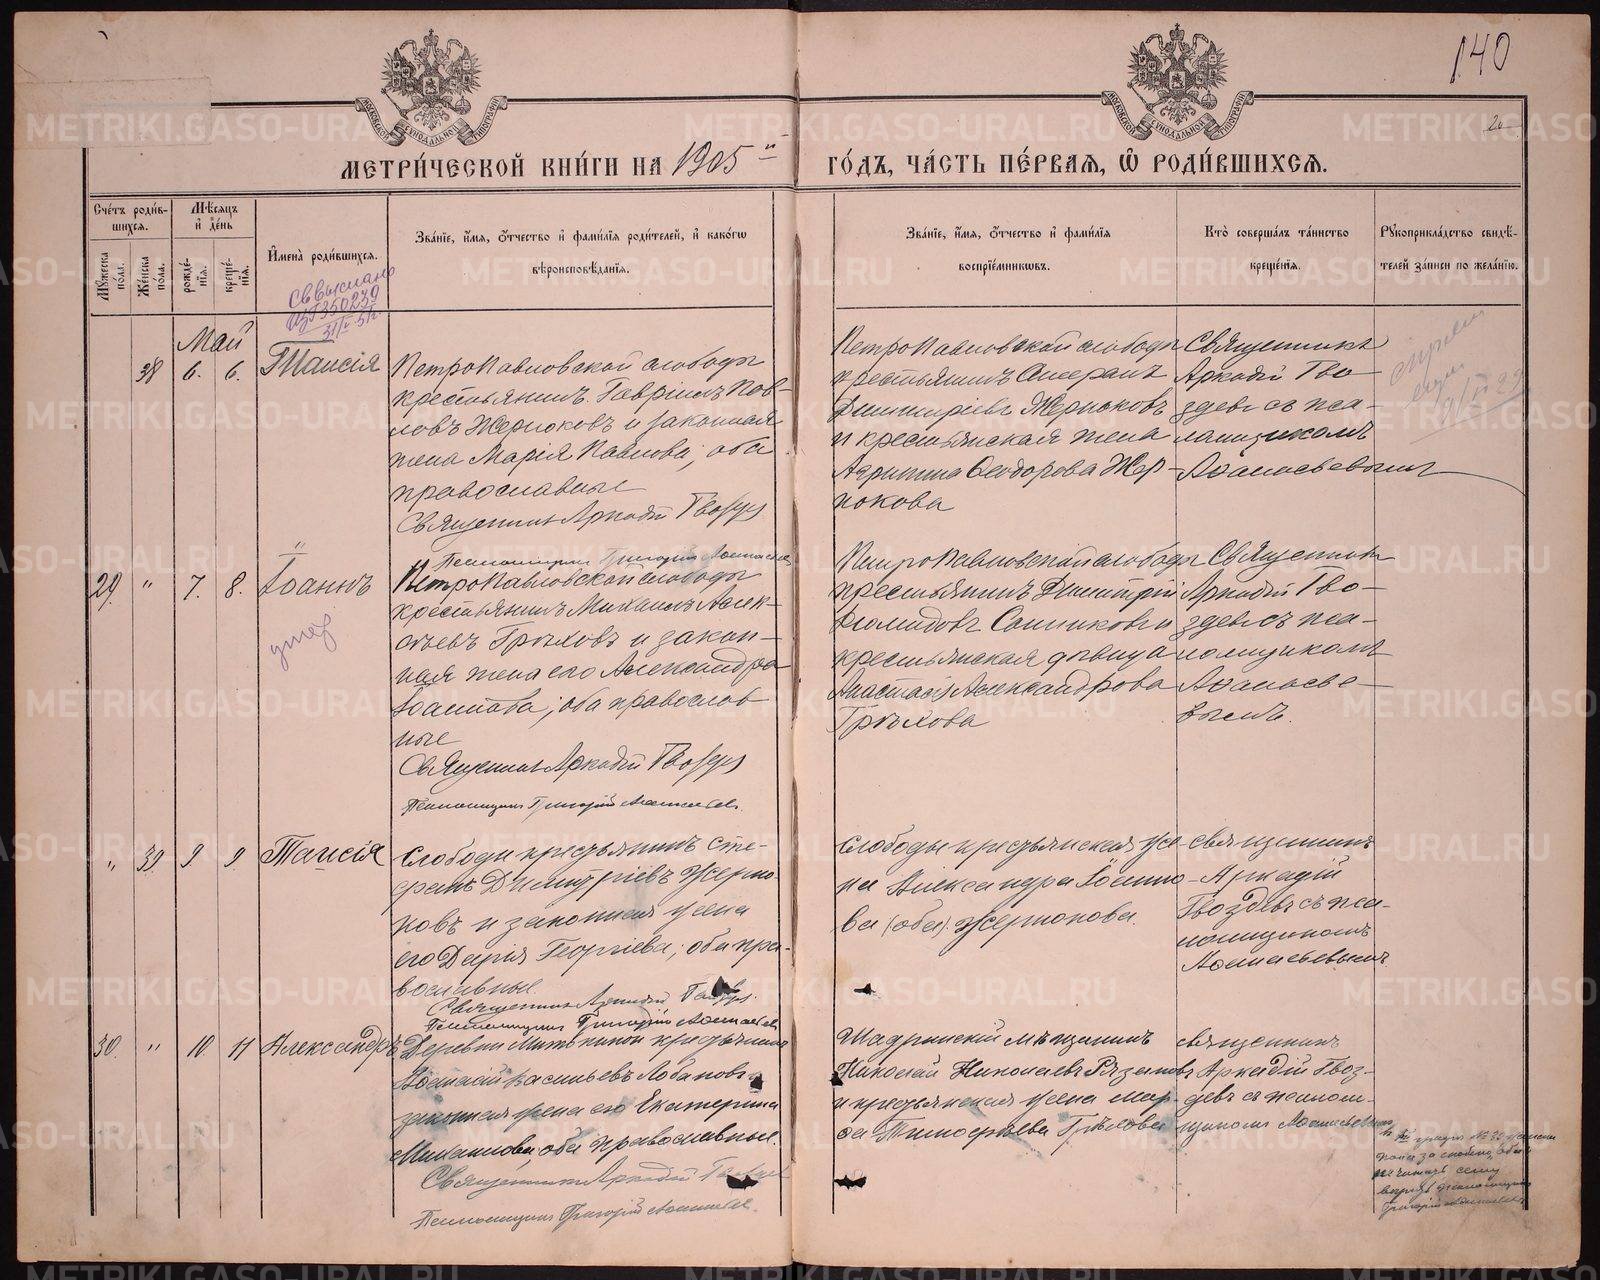 140
20
МЕТРИ́ЧЕСКОЙ КНИ́ГИ НА 1905 ГО́ДЪ, ЧА́СТЬ ПЕ́РВАЯ, Ѿ РОДИ́ВШИХСЯ.
Сче́тъ роди́в-
шихся.
Мѣ́сяцъ
и де́нь
Мꙋ́жеска по́ла.
Же́нска по́ла.
рожде́-
нїя.
креще́-
нїя.
И҆мена̀ роди́вшихся.
Зва́нїе, и҆́мя, ѻ҆́тчество и҆ фами́лїя роди́телей, и҆ како́гѡ
вѣроисповѣ́данїя.
Зва́нїе, и҆́мя, ѻ҆́тчество и҆ фами́лїя
воспрїе́мникѡвъ.
Кто̀ соверша́лъ та́инство
креще́нїя.
Рꙋкоприкла́дство свидѣ́-
телей за́писи по жела́нїю.
Св выслано
350239
Май
38 6. 6. Таисія
ПетроПавловской слободы
крестьянинъ Гавріилъ Пав-
ловъ Жернаковъ и законная
жена Марія Павлова, оба
православные
Священникъ Аркадій Гвоздевъ
Псаломщикъ Григорій Аѳанасьевъ
ПетроПавловской слободы
крестьянинъ
Димитріевъ Жернаковъ
и крестьянская жена
Агрипина Ѳеодорова Жер-
накова
Священникъ
Аркадій Гво-
здевъ съ пса-
ломщикомъ
Аѳанасьевымъ
29. " 7. 8. Іоаннъ
умер
ПетроПавловской слободы
крестьянинъ Михаилъ Алек-
сѣевъ Грѣховъ и закон-
ная жена его Александра
Іоаннова, оба православ
ные
Священникъ Аркадій Гвоздевъ
Псаломщикъ Григорій Аѳанасьевъ
ПетроПавловской слободы
крестьянинъ Димитрій
Санниковъ и
крестьянская дѣвица
Анастасія Александрова
Грѣхова
Священникъ
Аркадій Гво-
здевъ съ пса-
ломщикомъ
Аѳанасье-
вымъ.
" 39 9. 9. Таисія
Слободы крестьянинъ Сте-
фанъ Димитріевъ Жерна-
ковъ и законная жена
его Дарія Георгіева; оба пра-
вославные.
Священникъ Аркадій Гвоздевъ.
Псаломщикъ Григорій Аѳанасьевъ
Слободы крестьянская же-
на Александра Іоанно-
ва (оба) Жернакова.
священникъ
Аркадій
Гвоздевъ съ пса-
ломщикомъ
Аѳанасьевымъ
30. " 10. 11 Александръ
Деревни крестьянинъ
Аѳанасій Васильевъ Лобановъ
законная жена его Екатерина
оба православные.
Священникъ Аркадій Гвоздевъ
Псаломщикъ Григорій Аѳанасьевъ.
Шадринскій мѣщанинъ
Николай Николаевъ Рязановъ
и крестьянская жена Мар-
ѳа Тимофѣева Грѣхова
священникъ
Аркадій Гвоз-
девъ съ псалом-
щикомъ Аѳанасьевымъ
METRIKI.GASO-URAL.RU